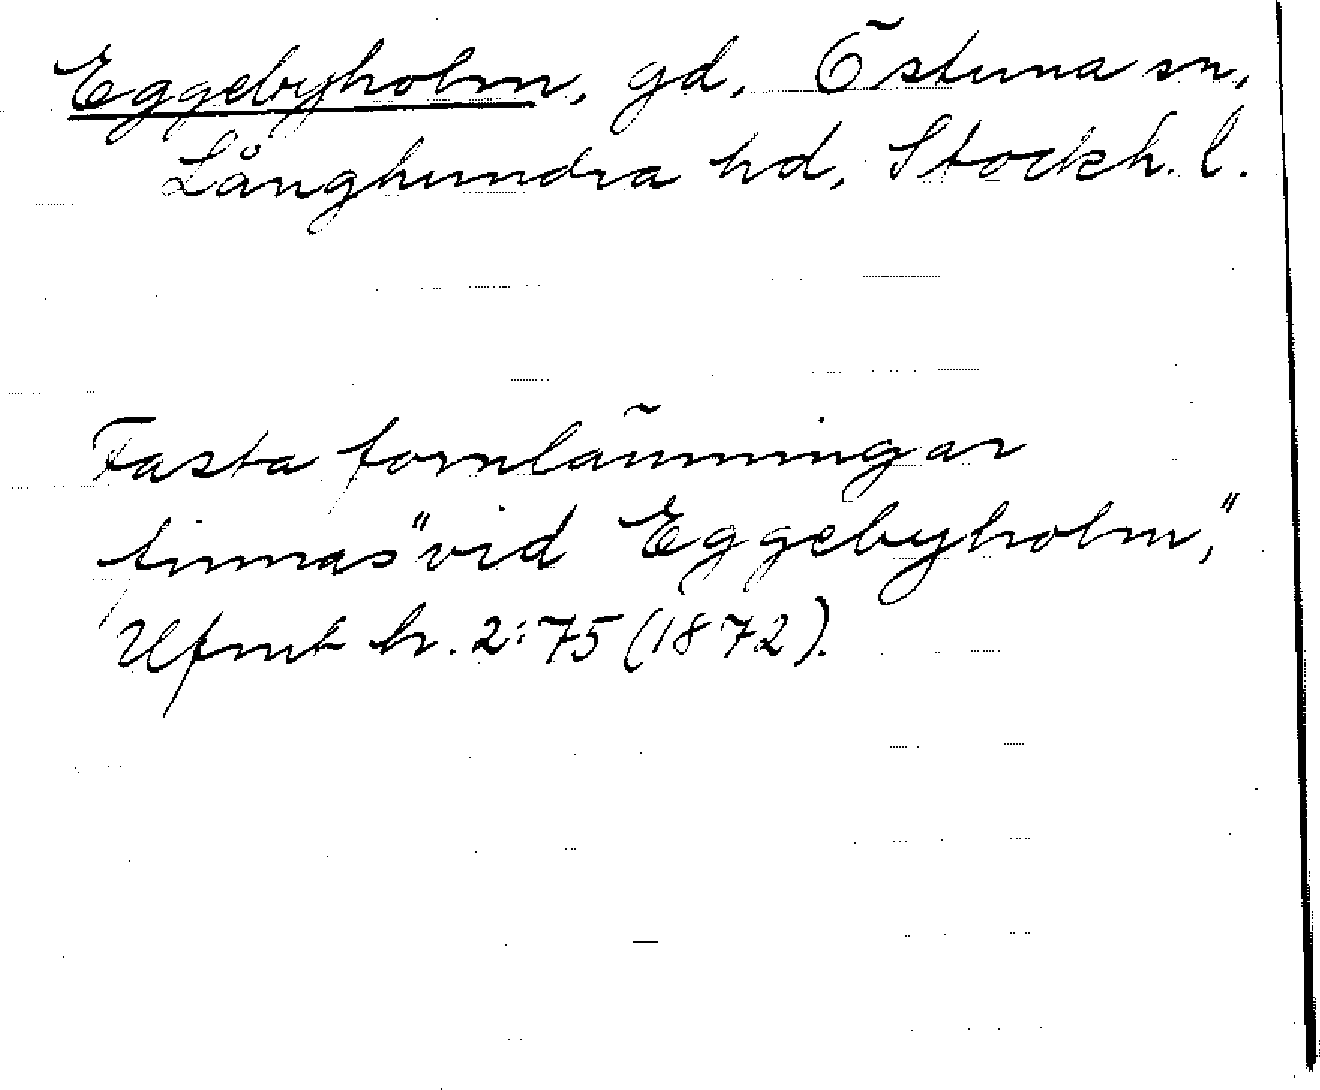 Eggebyholm, gd, Östuna sn,
Långhundra hd, Stockh. l.
Fasta fornlämningar
finnas "vid Eggebyholm,"
Ufmt h. 2:75 (1872).